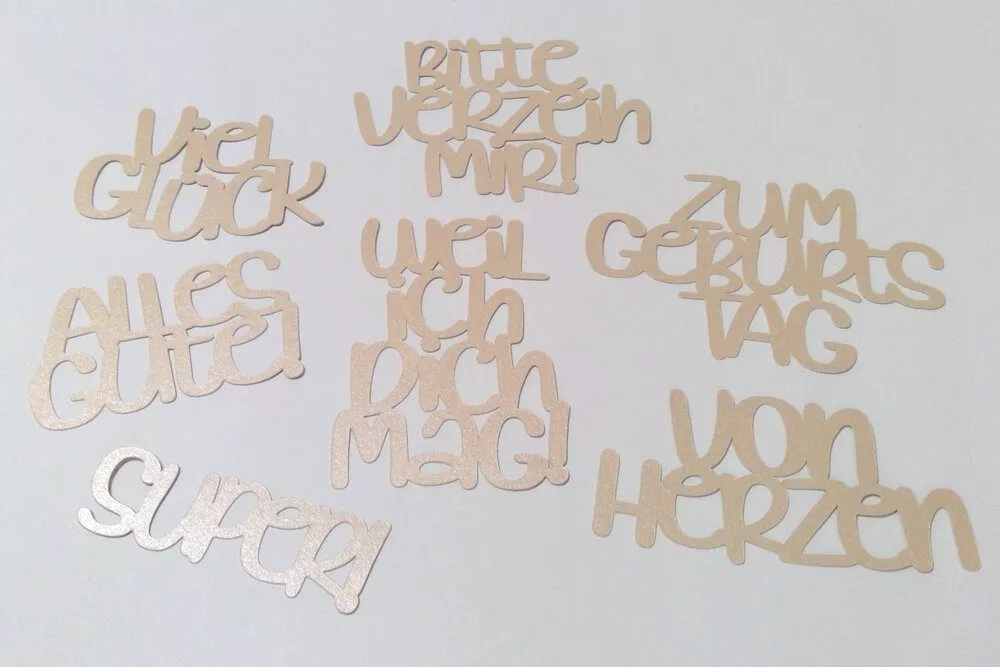 Viel
GLÜCK
Bitte
verzeih
MiR!
ZUM
GeBURtS
TAG
weil
ich
Dich
MaG!
Alles
Gute!
von
HeRzen
SUPER!